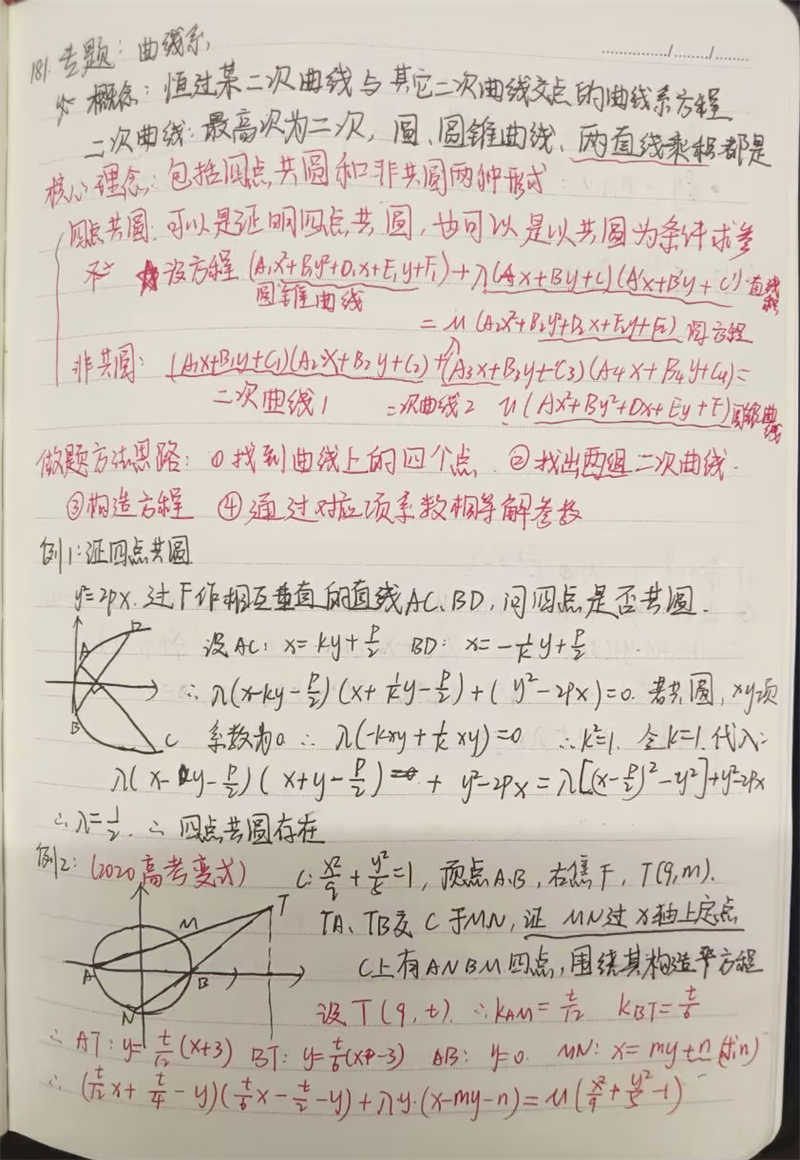 181. 专题：曲线系，
概念：恒过某二次曲线与其它二次曲线交点的曲线系方程
二次曲线：最高次为二次，圆、圆锥曲线、两直线乘积都是
核心理念：包括四点共圆和非共圆两种形式
四点共圆：可以是证明四点共圆，也可以是以共圆为条件求参
☆设方程 (A₁x²+B₁y²+D₁x+E₁y+F₁)+λ(Ax+By+C)(A'x+B'y+C') 直线积
圆锥曲线
=μ(A₂x²+B₂y²+D₂x+E₂y+F₂) 圆方程
非共圆：(A₁x+B₁y+C₁)(A₂x+B₂y+C₂)+λ(A₃x+B₃y+C₃)(A₄x+B₄y+C₄)=
二次曲线1 二次曲线2 μ(Ax²+By²+Dx+Ey+F)圆锥曲线
做题方法思路：①找到曲线上的四个点 ②找出两组二次曲线.
③构造方程 ④通过对应项系数相等解参数
例1：证四点共圆
y²=2px. 过F作相互垂直的直线AC、BD，问四点是否共圆.
A D 设AC: x=ky+p/2 BD: x=-1/k y+p/2
∴λ(x-ky-p/2)(x+1/k y-p/2)+(y²-2px)=0. 若共圆，xy项
B C 系数为0 ∴λ(-kxy+1/k xy)=0 ∴k²=1. 令k=1. 代入：
λ(x-y-p/2)(x+y-p/2)+y²-2px=λ[(x-p/2)²-y²]+y²-2px
∴λ=1/2. ∴四点共圆存在
例2：(2020高考变式) C: x²/9+y²/5=1，顶点A、B，右焦F，T(9,m).
M T TA、TB交C于MN，证MN过x轴上定点
A B C上有ANBM四点，围绕其构造平方程
N 设T(9,t). ∴kAM=t/12 kBT=t/6
∴AT: y=t/12(x+3) BT: y=t/6(x-3) AB: y=0. MN: x=my+n
∴(t/12 x+t/4-y)(t/6 x-t/2-y)+λy·(x-my-n)=μ(x²/9+y²/5-1)